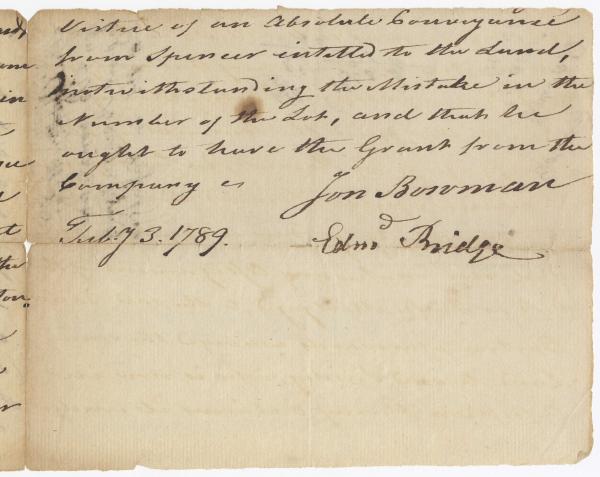 Virtue of an Absolute Conveyance
from Spencer intitled to the Land,
notwithstanding the Mistake in the
Number of the Lot, and that he
ought to have the Grant from the
Company
Jon Bowman
July 3. 1789.
Edmd Bridge
in
the